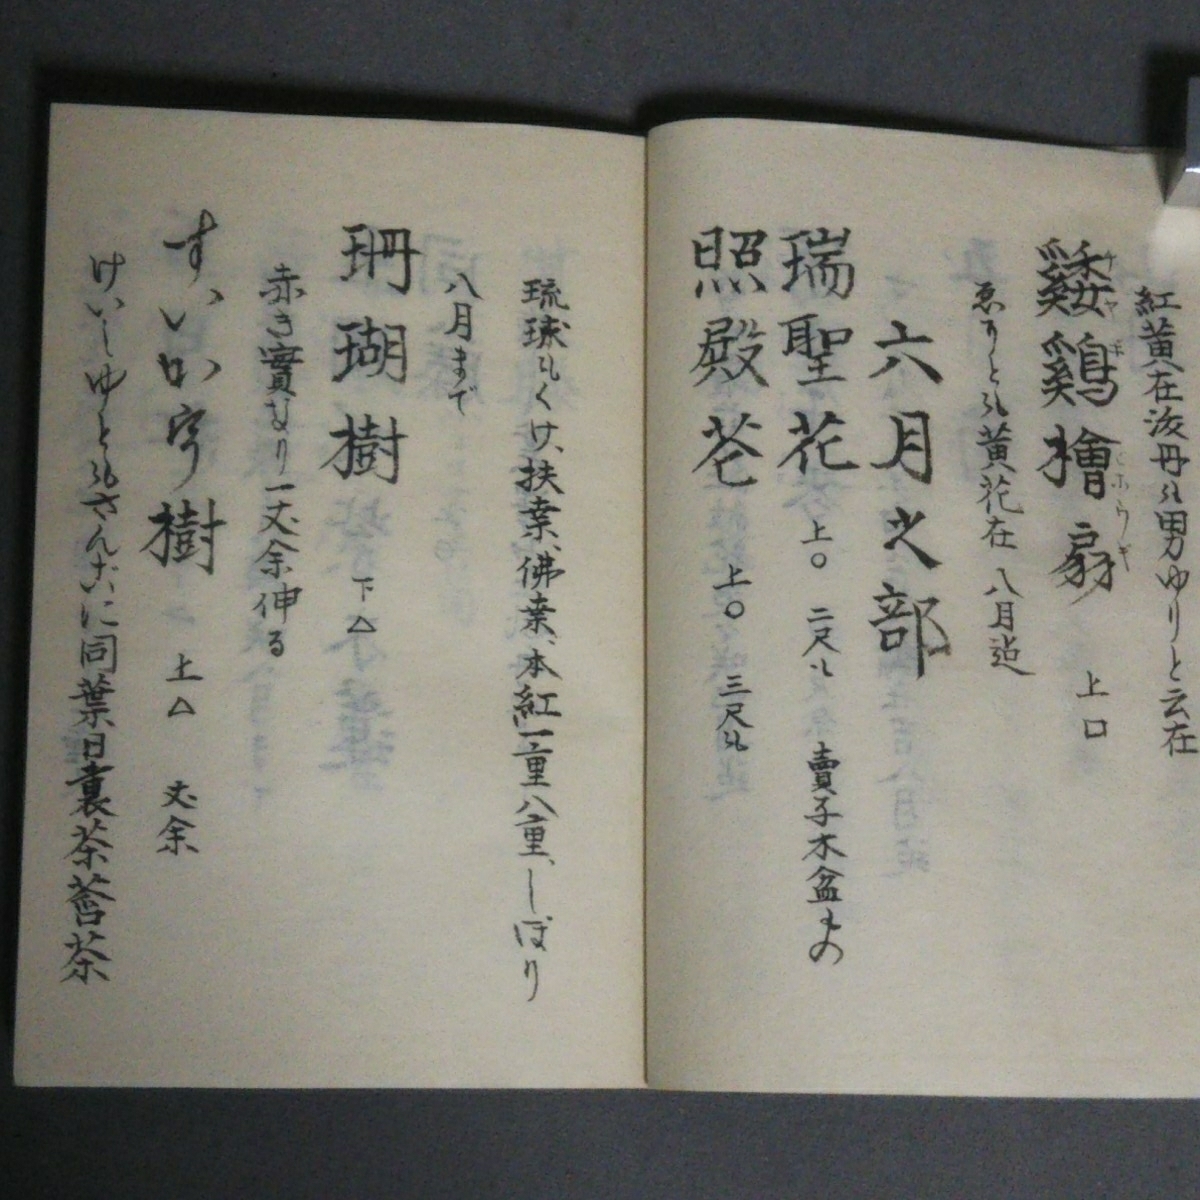 紅黄在淡丹ハ男ゆりと云在
鷄檜扇 上口
ヒホウギ
ゑりとハ黄花在 八月迄
六月之部
瑞聖花 上〇 二尺ハ 賣子木盆もの
照殿花 上〇 三尺ハ
琉球にく、扶桒、佛桒、本紅一重八重、しぼり
八月まで
珊瑚樹 下△
赤き實なり一丈余伸る
すいか宇樹 上△ 丈余
けいしゆとハさんごに同葉日裏茶茶